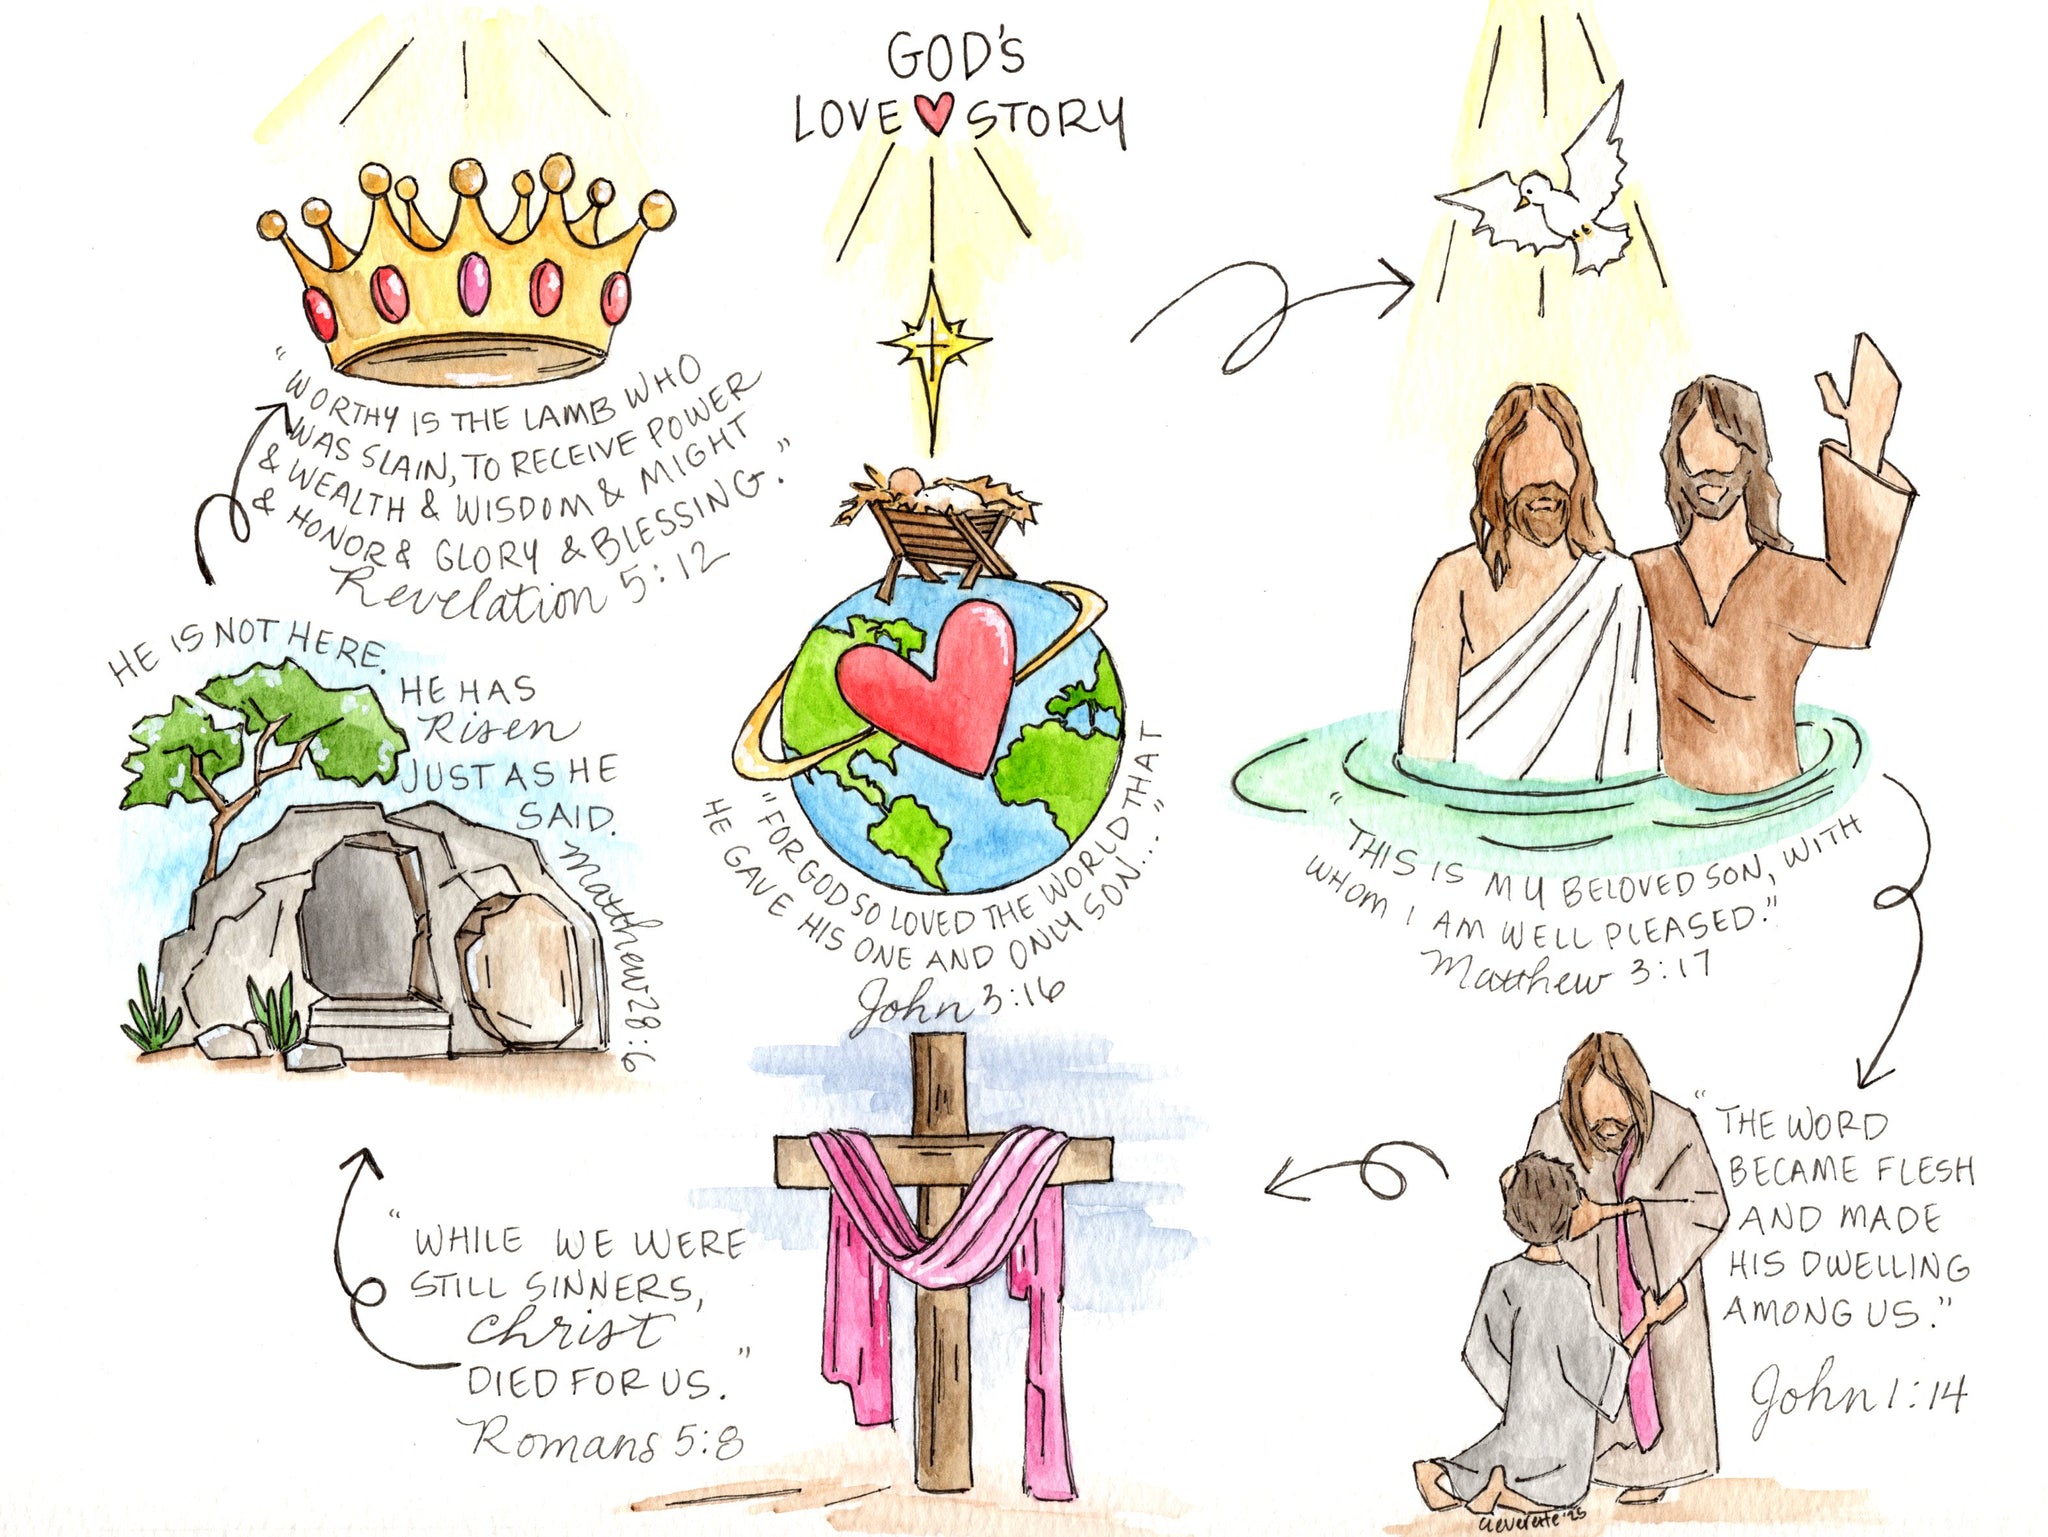 GOD'S
LOVE STORY
"FOR GOD SO LOVED THE WORLD THAT
HE GAVE HIS ONE AND ONLY SON...."
John 3:16
"THIS IS MY BELOVED SON, WITH
WHOM I AM WELL PLEASED."
Matthew 3:17
"THE WORD
BECAME FLESH
AND MADE
HIS DWELLING
AMONG US."
John 1:14
"WHILE WE WERE
STILL SINNERS,
Christ
DIED FOR US."
Romans 5:8
HE IS NOT HERE.
HE HAS
Risen
JUST AS HE
SAID.
Matthew 28:6
"WORTHY IS THE LAMB WHO
WAS SLAIN, TO RECEIVE POWER
& WEALTH & WISDOM & MIGHT
& HONOR & GLORY & BLESSING."
Revelation 5:12